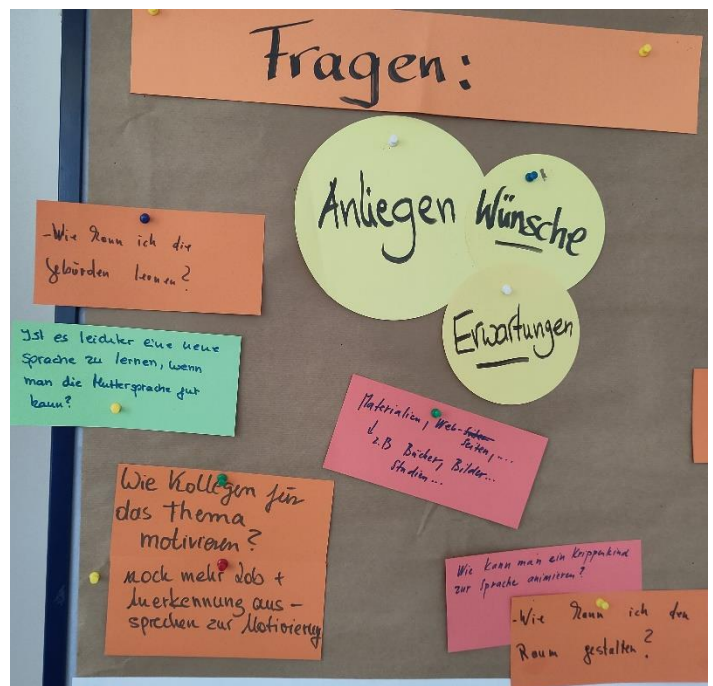 Fragen:
Anliegen
Wünsche
Erwartungen
-Wie kann ich die
Gebärden lernen?
Ist es leichter eine neue
Sprache zu lernen, wenn
man die Muttersprache gut
kann?
Materialien, Web-
seiten, ...
↓
z.B Bücher, Bilder...
Studien...
Wie Kollegen für
das Thema
motivieren?
noch mehr Lob +
Anerkennung aus-
sprechen zur Motivierung
Wie kann man ein Krippenkind
zur Sprache animieren?
-Wie kann ich den
Raum gestalten?